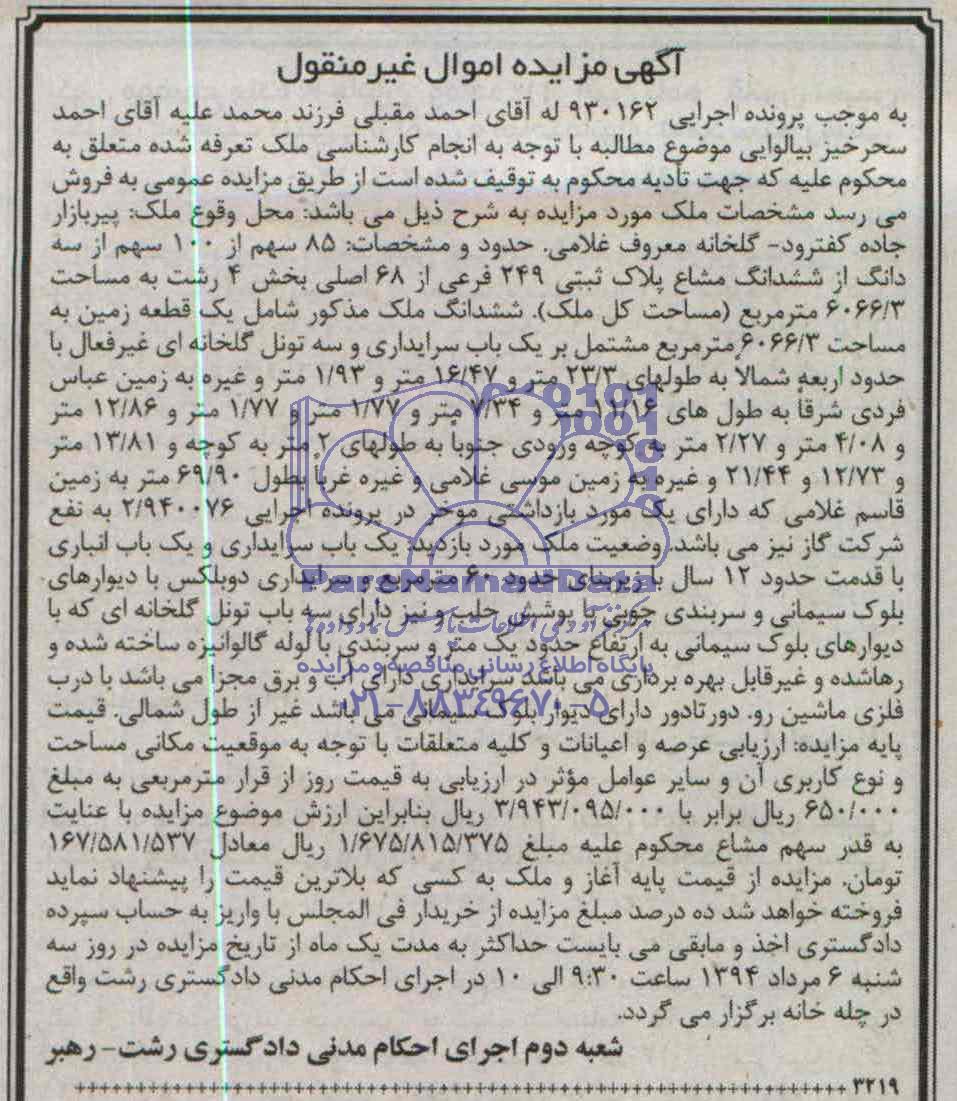 آگهی مزایده اموال غیرمنقول
به موجب پرونده اجرایی ۹۳۰۱۶۲ له آقای احمد مقبلی فرزند محمد علیه آقای احمد
سحرخیز بیالوایی موضوع مطالبه با توجه به انجام کارشناسی ملک تعرفه شده متعلق به
محکوم علیه که جهت تأدیه محکوم به توقیف شده است از طریق مزایده عمومی به فروش
می رسد مشخصات ملک مورد مزایده به شرح ذیل می باشد: محل وقوع ملک: پیربازار
جاده کفترود- گلخانه معروف غلامی. حدود و مشخصات: ۸۵ سهم از ۱۰۰ سهم از سه
دانگ از ششدانگ مشاع پلاک ثبتی ۲۴۹ فرعی از ۶۸ اصلی بخش ۴ رشت به مساحت
۶۰۶۶/۳ مترمربع (مساحت کل ملک). ششدانگ ملک مذکور شامل یک قطعه زمین به
مساحت ۶۰۶۶/۳ مترمربع مشتمل بر یک باب سرایداری و سه تونل گلخانه ای غیرفعال با
حدود اربعه شمالاً به طولهای ۲۳/۳ متر و ۱۶/۴۷ متر و ۱/۹۳ متر و غیره به زمین عباس
فردی شرقاً به طول های ۱۱/۱۶ متر و ۷/۳۴ متر و ۱/۷۷ متر و ۱/۷۷ متر و ۱۲/۸۶ متر
و ۴/۰۸ متر و ۲/۲۷ متر به کوچه ورودی جنوباً به طولهای ۲۰ متر به کوچه و ۱۳/۸۱ متر
و ۱۲/۷۳ و ۲۱/۴۴ و غیره به زمین موسی غلامی و غیره غرباً بطول ۶۹/۹۰ متر به زمین
قاسم غلامی که دارای یک مورد بازداشتی موخر در پرونده اجرایی ۲/۹۴۰۰۷۶ به نفع
شرکت گاز نیز می باشد. وضعیت ملک مورد بازدید: یک باب سرایداری و یک باب انباری
با قدمت حدود ۱۲ سال با زیربنای حدود ۶۰ مترمربع و سرایداری دوبلکس با دیوارهای
بلوک سیمانی و سربندی چوبی با پوشش حلب و نیز دارای سه باب تونل گلخانه ای که با
دیوارهای بلوک سیمانی به ارتفاع حدود یک متر و سربندی با لوله گالوانیزه ساخته شده و
رهاشده و غیرقابل بهره برداری می باشد سرایداری دارای آب و برق مجزا می باشد با درب
فلزی ماشین رو. دورتادور دارای دیوار بلوک سیمانی می باشد غیر از طول شمالی. قیمت
پایه مزایده: ارزیابی عرصه و اعیانات و کلیه متعلقات با توجه به موقعیت مکانی مساحت
و نوع کاربری آن و سایر عوامل مؤثر در ارزیابی به قیمت روز از قرار مترمربعی به مبلغ
۶۵۰/۰۰۰ ریال برابر با ۳/۹۴۳/۰۹۵/۰۰۰ ریال بنابراین ارزش موضوع مزایده با عنایت
به قدر سهم مشاع محکوم علیه مبلغ ۱/۶۷۵/۸۱۵/۳۷۵ ریال معادل ۱۶۷/۵۸۱/۵۳۷
تومان. مزایده از قیمت پایه آغاز و ملک به کسی که بلاترین قیمت را پیشنهاد نماید
فروخته خواهد شد ده درصد مبلغ مزایده از خریدار فی المجلس با واریز به حساب سپرده
دادگستری اخذ و مابقی می بایست حداکثر به مدت یک ماه از تاریخ مزایده در روز سه
شنبه ۶ مرداد ۱۳۹۴ ساعت ۹:۳۰ الی ۱۰ در اجرای احکام مدنی دادگستری رشت واقع
در چله خانه برگزار می گردد.
شعبه دوم اجرای احکام مدنی دادگستری رشت- رهبر
۳۲۱۹
ParsNamadData
پایگاه اطلاع رسانی مناقصه و مزایده
۰۲۱-۸۸۳۴۹۶۷۰-۵